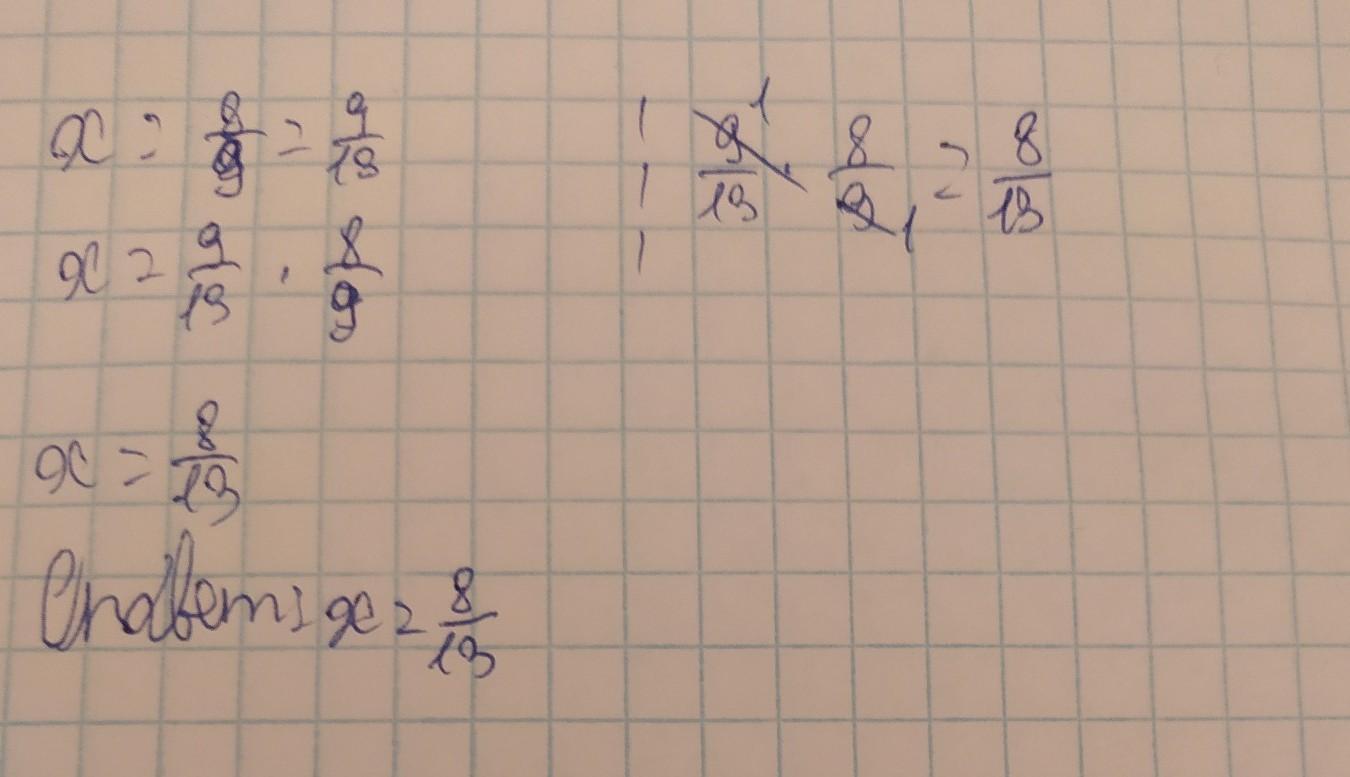 x : 8/9 = 9/13
x = 9/13 · 8/9
x = 8/13
Ответ: x = 8/13
9¹/13 · 8/9₁ = 8/13